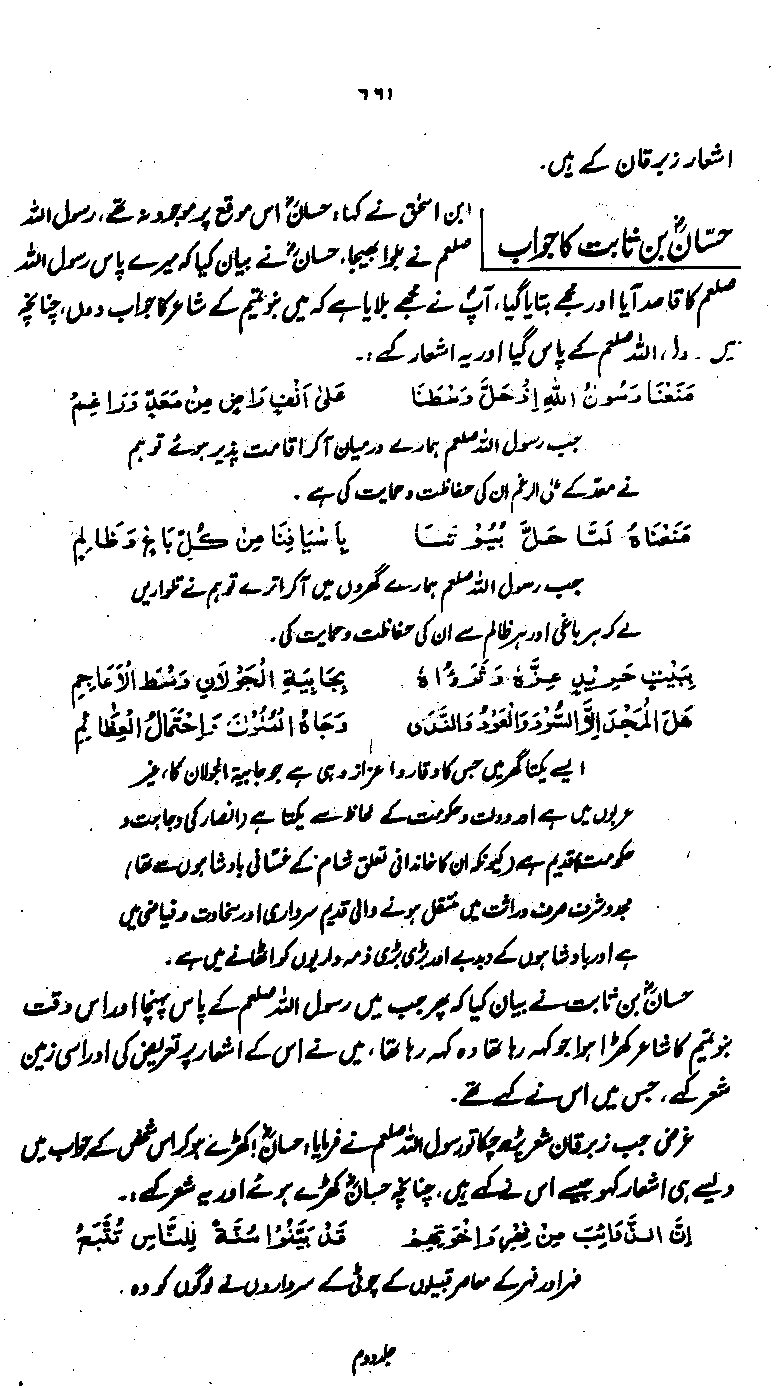 ۶۶۱
اشعار زبرقان کے ہیں۔
حسّانؓ بن ثابت کا جواب
ابن اسحٰق نے کہا، حسانؓ اس موقع پر موجود نہ تھے، رسول اللہ
صلعم نے بلوا بھیجا، حسانؓ نے بیان کیا کہ میرے پاس رسول اللہ
صلعم کا قاصد آیا اور مجھے بتایا گیا، آپؐ نے مجھے بلایا ہے کہ میں بنو تمیم کے شاعر کا جواب دوں، چنانچہ
میں رسول اللہ صلعم کے پاس گیا اور یہ اشعار کہے :۔
مَنَعْنَا رَسُوْلَ اللهِ اِذْ حَلَّ وَسْطَنَا عَلٰى اَنْفِ رَاضٍ مِنْ مَعَدٍّ وَرَاغِمٖ
جب رسول اللہ صلعم ہمارے درمیان آکر اقامت پذیر ہوئے تو ہم
نے معد کے علی الرغم ان کی حفاظت و حمایت کی ہے ۔
مَنَعْنَاهُ لَمَّا حَلَّ بُيُوْتَنَا بِاَسْيَافِنَا مِنْ كُلِّ بَاغٍ وَظَالِمٖ
جب رسول اللہ صلعم ہمارے گھروں میں آکر اترے تو ہم نے تلواریں
لے کر ہر باغی اور ہر ظالم سے ان کی حفاظت و حمایت کی۔
بِبَيْتٍ حَرِيْدٍ عِزُّهٗ وَثَرَاؤُهٗ بِجَابِيَةِ الْجَوْلَانِ وَسْطَ الْاَعَاجِمٖ
هَلِ الْمَجْدُ اِلَّا السُّوْدَدُ الْعَوْدُ وَالنَّدٰى وَجَاهُ الْمُلُوْكِ وَاحْتِمَالُ الْعَظَائِمٖ
ایسے یکتا گھر میں جس کا وقار و اعزاز وہی ہے جو جابیۃ الجولان کا، غیر
عربوں میں ہے اور دولت و حکومت کے لحاظ سے یکتا ہے (انصار کی وجاہت و
حکومت قدیم ہے (کیونکہ ان کا خاندانی تعلق شام کے غسّانی بادشاہوں سے تھا)
مجد و شرف صرف وراثت میں منتقل ہونے والی قدیم سرداری اور سخاوت و فیاضی میں
ہے اور بادشاہوں کے دبدبے اور بڑی بڑی ذمہ داریوں کو اٹھانے میں ہے۔
حسانؓ بن ثابت نے بیان کیا کہ پھر جب میں رسول اللہ صلعم کے پاس پہنچا اور اس وقت
بنو تمیم کا شاعر کھڑا ہوا جو کہہ رہا تھا وہ کہہ رہا تھا، میں نے اس کے اشعار پر تعریض کی اور اسی زمین
شعر کہے، جس میں اس نے کہے تھے۔
غرض جب زبرقان شعر پڑھ چکا تو رسول اللہ صلعم نے فرمایا، حسانؓ! کھڑے ہو کر اس شخص کے جواب میں
ویسے ہی اشعار کہو جیسے اس نے کہے ہیں، چنانچہ حسانؓ کھڑے ہوئے اور یہ شعر کہے :۔
اِنَّ الذَّوَائِبَ مِنْ فِهْرٍ وَاِخْوَتِهِمْ قَدْ بَيَّنُوْا سُنَّةً لِلنَّاسِ تُتَّبَعُ
فہر اور فہر کے معاصر قبیلوں کے چوٹی کے سرداروں نے لوگوں کو وہ
جلد دوم